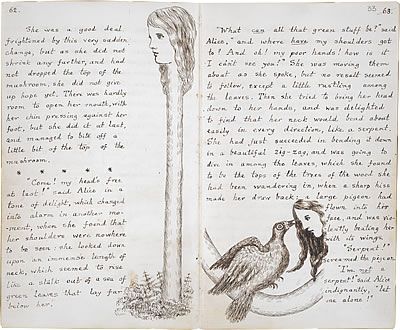 62.
She was a good deal
frightened by this very sudden
change, but as she did not
shrink any further, and had
not dropped the top of the
mushroom, she did not give
up hope yet. There was hardly
room to open her mouth, with
her chin pressing against her
foot, but she did it at last,
and managed to bite off a
little bit of the top of the
mushroom.
* * * * *
"Come! my head's free
at last!" said Alice in a
tone of delight, which changed
into alarm in another mo-
ment, when she found that
her shoulders were nowhere
to be seen: she looked down
upon an immense length of
neck, which seemed to rise
like a stalk out of a sea of
green leaves that lay far
below her.
33
63.
"What can all that green stuff be?" said
Alice, "and where have my shoulders got
to? And oh! my poor hands! how is it
I can't see you?" She was moving them
about as she spoke, but no result seemed
to follow, except a little rustling among
the leaves. Then she tried to bring her head
down to her hands, and was delighted
to find that her neck would bend about
easily in every direction, like a serpent.
She had just succeeded in bending it down
in a beautiful zig-zag, and was going to
dive in among the leaves, which she found
to be the tops of the trees of the wood she
had been wandering in, when a sharp hiss
made her draw back: a large pigeon had
flown into her
face, and was vio-
lently beating her
with its wings.
"Serpent!"
screamed the pigeon.
"I'm not a
serpent!" said Alice
indignantly, "let
me alone!"